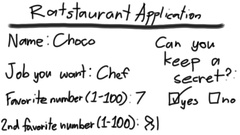 Ratstaurant Application
Name: Choco
Job you want: Chef
Favorite number (1-100): 7
2nd favorite number (1-100): 81
Can you
keep a
secret?:
yes no